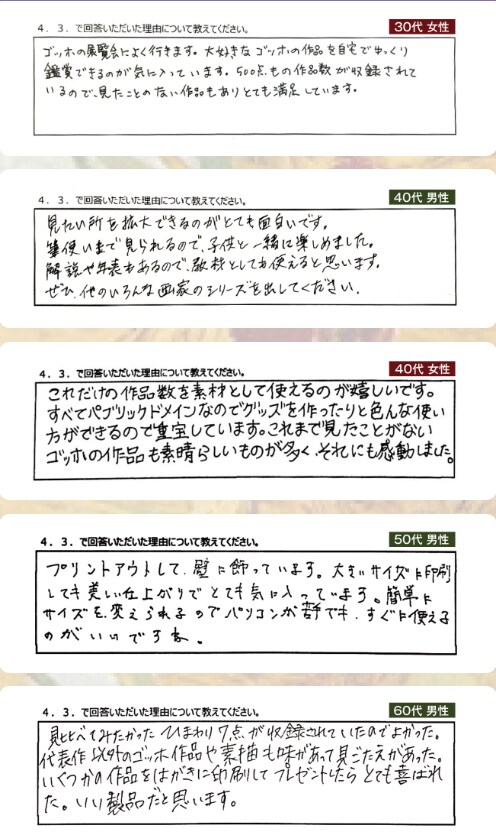 4．3．で回答いただいた理由について教えてください。
30代 女性
ゴッホの展覧会によく行きます。大好きなゴッホの作品を自宅でゆっくり
鑑賞できるのが気に入っています。500点もの作品数が収録されて
いるので、見たことのない作品もありとても満足しています。
4．3．で回答いただいた理由について教えてください。
40代 男性
見たい所を拡大できるのがとても面白いです。
筆使いまで見られるので、子供と一緒に楽しめました。
解説や年表もあるので、教材としても使えると思います。
ぜひ、他のいろんな画家のシリーズを出してください．
4．3．で回答いただいた理由について教えてください。
40代 女性
これだけの作品数を素材として使えるのが嬉しいです。
すべてパブリックドメインなのでグッズを作ったりと色んな使い
方ができるので重宝しています。これまで見たことがない
ゴッホの作品も素晴らしいものが多く、それにも感動しました。
4．3．で回答いただいた理由について教えてください。
50代 男性
プリントアウトして、壁に飾っています。大きいサイズに印刷
しても美しい仕上がりでとても気に入っています。簡単に
サイズを変えられるのでパソコンが苦手でも、すぐに使える
のがいいですね。
4．3．で回答いただいた理由について教えてください。
60代 男性
見比べてみたかったひまわり7点が収録されていたのでよかった。
代表作以外のゴッホ作品や素描も味があって見ごたえがあった。
いくつかの作品をはがきに印刷してプレゼントしたらとても喜ばれ
た。いい製品だと思います。